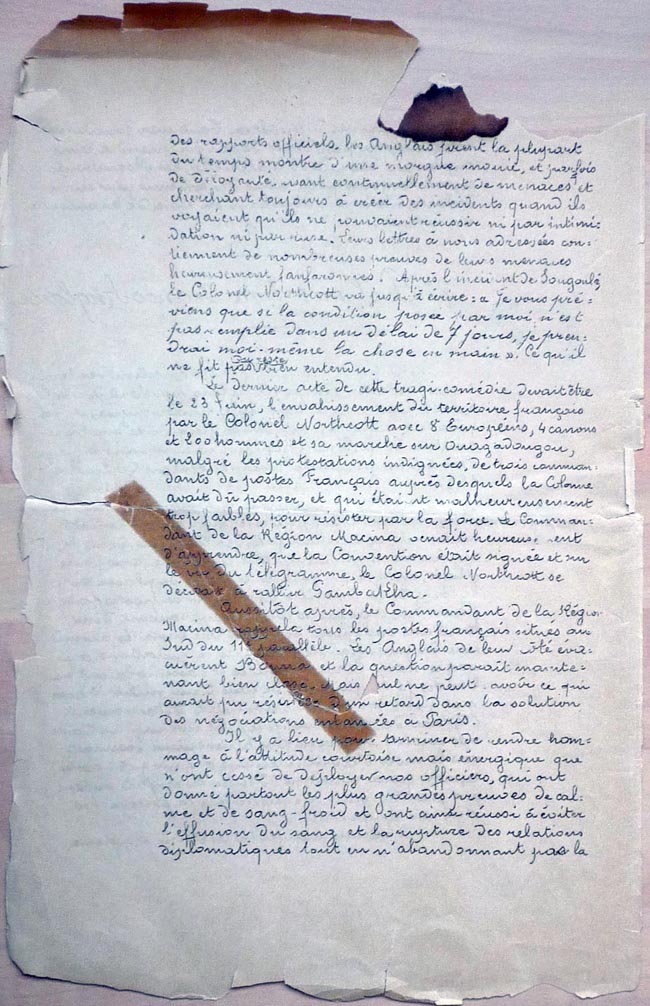 des rapports officiels, les Anglais firent la plupart
du temps montre d'une morgue inouïe, et parfois
de déloyauté, usant continuellement de menaces et
cherchant toujours à créer des incidents quand ils
voyaient qu'ils ne pouvaient réussir ni par intimi-
dation ni par ruse. Leurs lettres à nous adressées con-
tiennent de nombreuses preuves de leurs menaces
heureusement fanfaronnes. Après l'incident de
le Colonel Northcott va jusqu'à écrire: « Je vous pré-
viens que si la condition posée par moi n'est
pas remplie dans un délai de 7 jours, je pren-
drai moi-même la chose en main ». Ce qu'il
ne fit pas du reste bien entendu.
Le dernier acte de cette tragi-comédie devait être
le 23 Juin, l'envahissement du territoire français
par le Colonel Northcott avec 8 Européens, 4 canons
et 200 hommes et sa marche sur Ouagadougou,
malgré les protestations indignées, de trois comman-
dants de postes Français auprès desquels la Colonne
avait dû passer, et qui étaient malheureusement
trop faibles, pour résister par la force. Le Comman-
dant de la Région Macina venait heureusement
d'apprendre, que la Convention était signée et sur
le vu du télégramme, le Colonel Northcott se
décida à rallier Gambakha.
Aussitôt après, le Commandant de la Région
Macina rappela tous les postes français situés au
Sud du 11e parallèle. Les Anglais de leur côté éva-
cuèrent Bouna et la question paraît mainte-
nant bien close. Mais nul ne peut savoir ce qui
aurait pu résulter d'un retard dans la solution
des négociations entamées à Paris.
Il y a lieu pour terminer de rendre hom-
mage à l'attitude courtoise mais énergique que
n'ont cessé de déployer nos officiers, qui ont
donné partout les plus grandes preuves de cal-
me et de sang-froid et ont ainsi réussi à éviter
l'effusion du sang et la rupture des relations
diplomatiques tout en n'abandonnant pas la